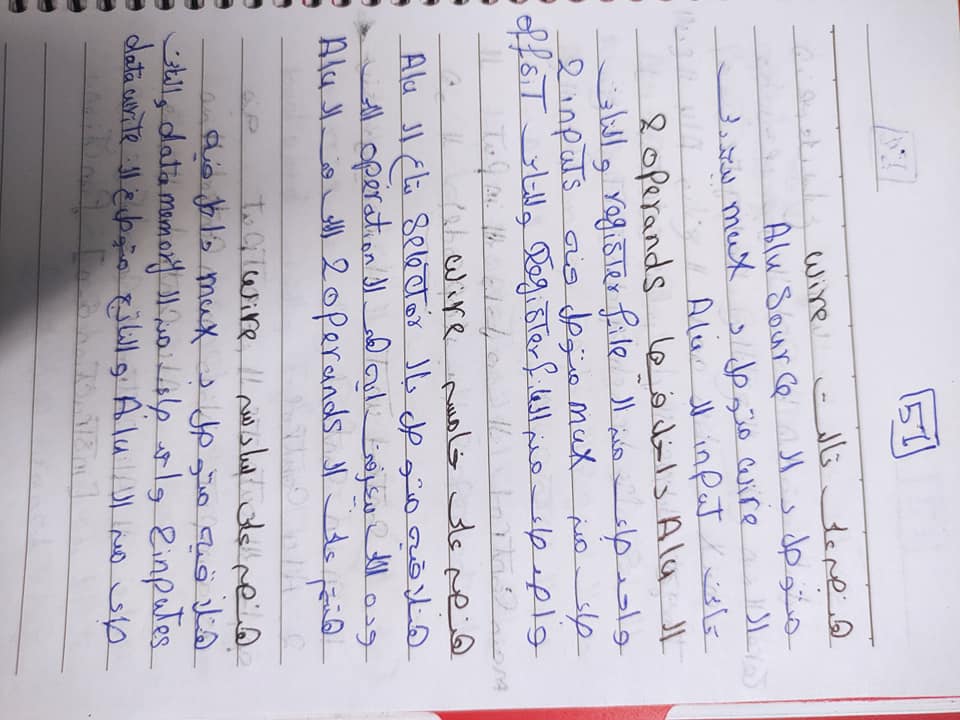 51
هنبص على تالت wire
متوصل بـ الـ Alu Source
الـ wire متوصل بـ mux بيحدد
تانى input للـ Alu
الـ Alu داخل فيها 2 operands
واحد جاى من الـ register file والتانى
جاى من mux متوصل فيه 2 inputs
واحد جاى من الـ Register file والتانى offsiT
هنبص على خامس wire
هنلاقيه متوصل بالـ Selector بتاع الـ Alu
وده اللى بيعرفنى ايه هى الـ operation اللى
هتتم على الـ 2 operands اللى فى الـ Alu
هنبص على سادس wire
هنلاقيه متوصل بـ mux داخل فيه
2 inputes واحد جاى من الـ data memory والتانى
جاى من الـ Alu والناتج متوصل مع الـ data write